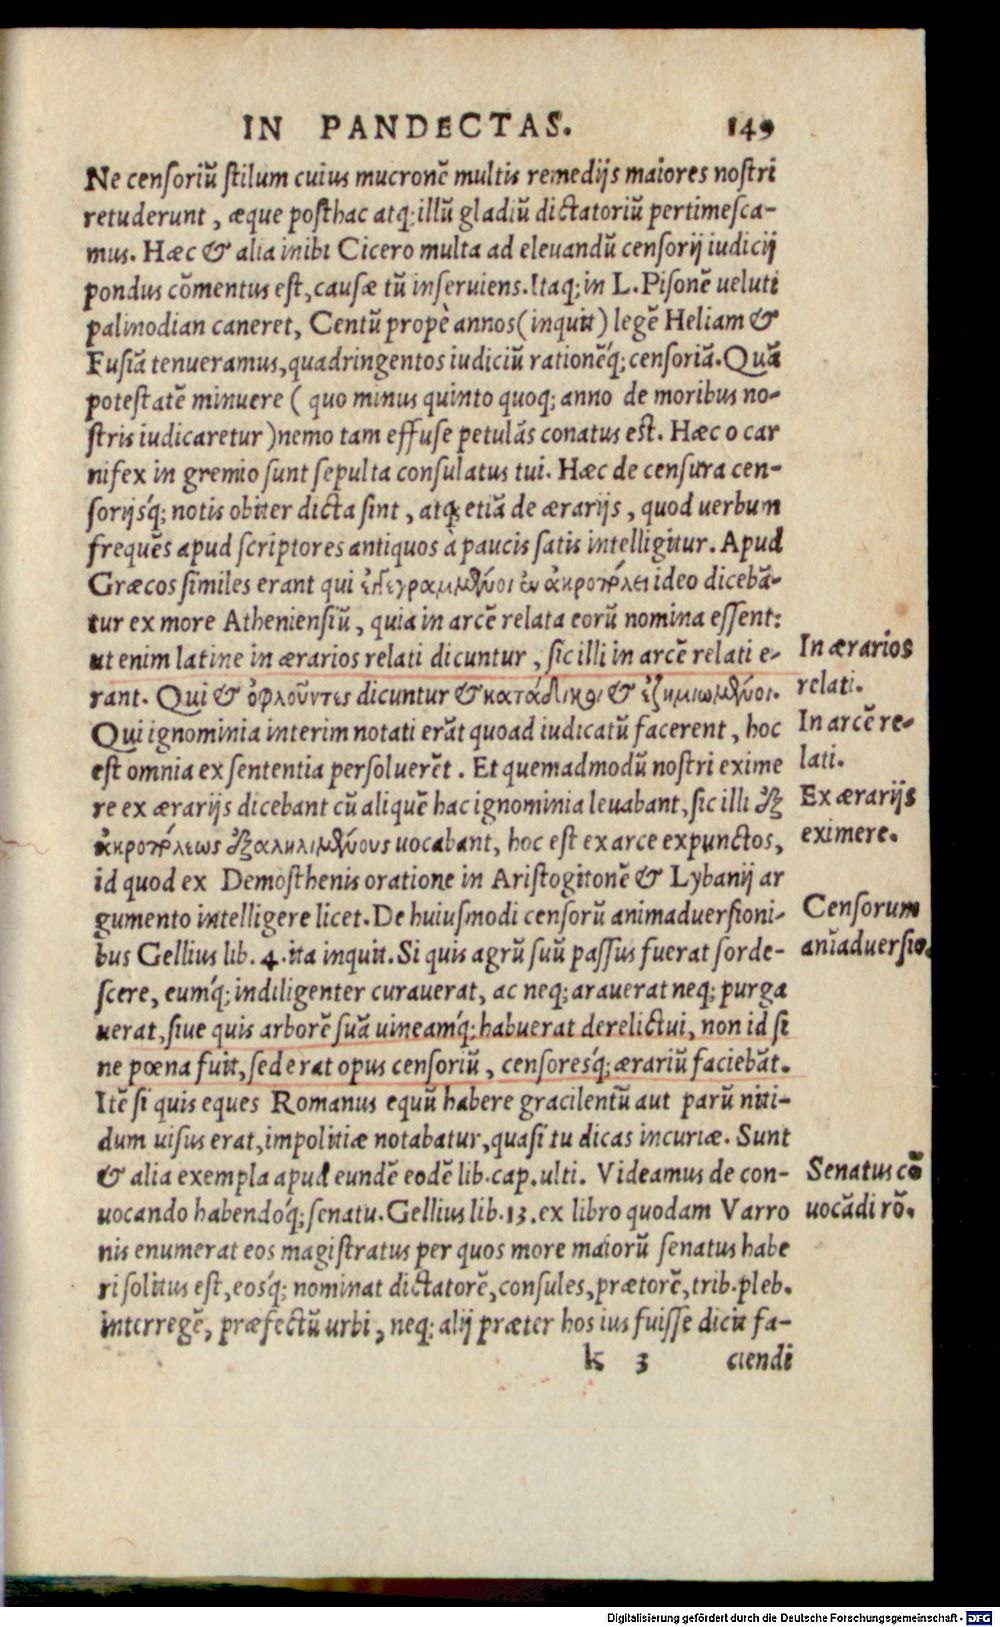 IN PANDECTAS. 149
Ne censoriū stilum cuius mucronē multis remedijs maiores nostri
retuderunt, æque posthac atq; illū gladiū dictatoriū pertimesca-
mus. Hæc & alia inibi Cicero multa ad eleuandū censorij iudicij
pondus cōmentus est, causæ tū inseruiens. Itaq; in L. Pisonē ueluti
palinodian caneret, Centū propè annos (inquit) legē Heliam &
Fusiā tenueramus, quadringentos iudiciū rationēq́; censoriā. Quā
potestatē minuere ( quo minus quinto quoq; anno de moribus no-
stris iudicaretur) nemo tam effuse petulās conatus est. Hæc o car
nifex in gremio sunt sepulta consulatus tui. Hæc de censura cen-
sorijsq́; notis obiter dicta sint, atq; etiā de ærarijs, quod uerbum
frequēs apud scriptores antiquos à paucis satis intelligitur. Apud
Græcos similes erant qui ἐγγεγραμμένοι ἐν ἀκροπόλει ideo dicebā-
tur ex more Atheniensiū, quia in arcē relata eorū nomina essent:
ut enim latine in ærarios relati dicuntur, sic illi in arcē relati e-
rant. Qui & ὀφλοῦντες dicuntur & κατάδικοι & ἐζημιωμένοι.
Qui ignominia interim notati erāt quoad iudicatū facerent, hoc
est omnia ex sententia persoluerēt. Et quemadmodū nostri exime
re ex ærarijs dicebant cū aliquē hac ignominia leuabant, sic illi ἐξ
ἀκροπόλεως ἐξαληλιμμένους uocabant, hoc est ex arce expunctos,
id quod ex Demosthenis oratione in Aristogitonē & Lybanij ar
gumento intelligere licet. De huiusmodi censorū animaduersioni-
bus Gellius lib. 4. ita inquit. Si quis agrū suū passus fuerat sorde-
scere, eumq́; indiligenter curauerat, ac neq; arauerat neq; purga
uerat, siue quis arborē suā uineamq́; habuerat derelictui, non id si
ne pœna fuit, sed erat opus censoriū, censoresq́; ærariū faciebāt.
Itē si quis eques Romanus equū habere gracilentū aut parū niti-
dum uisus erat, impolitiæ notabatur, quasi tu dicas incuriæ. Sunt
& alia exempla apud eundē eodē lib. cap. ulti. Videamus de con-
uocando habendoq́; senatu. Gellius lib. 13. ex libro quodam Varro
nis enumerat eos magistratus per quos more maiorū senatus habe
ri solitus est, eosq́; nominat dictatorē, consules, prætorē, trib. pleb.
interregē, præfectū urbi, neq; alij præter hos ius fuisse dicit fa-
k 3 ciendi
In ærarios
relati.
In arcē re-
lati.
Ex ærarijs
eximere.
Censorum
anīaduersio.
Senatus cō
uocādi rō.
Digitalisierung gefördert durch die Deutsche Forschungsgemeinschaft - DFG